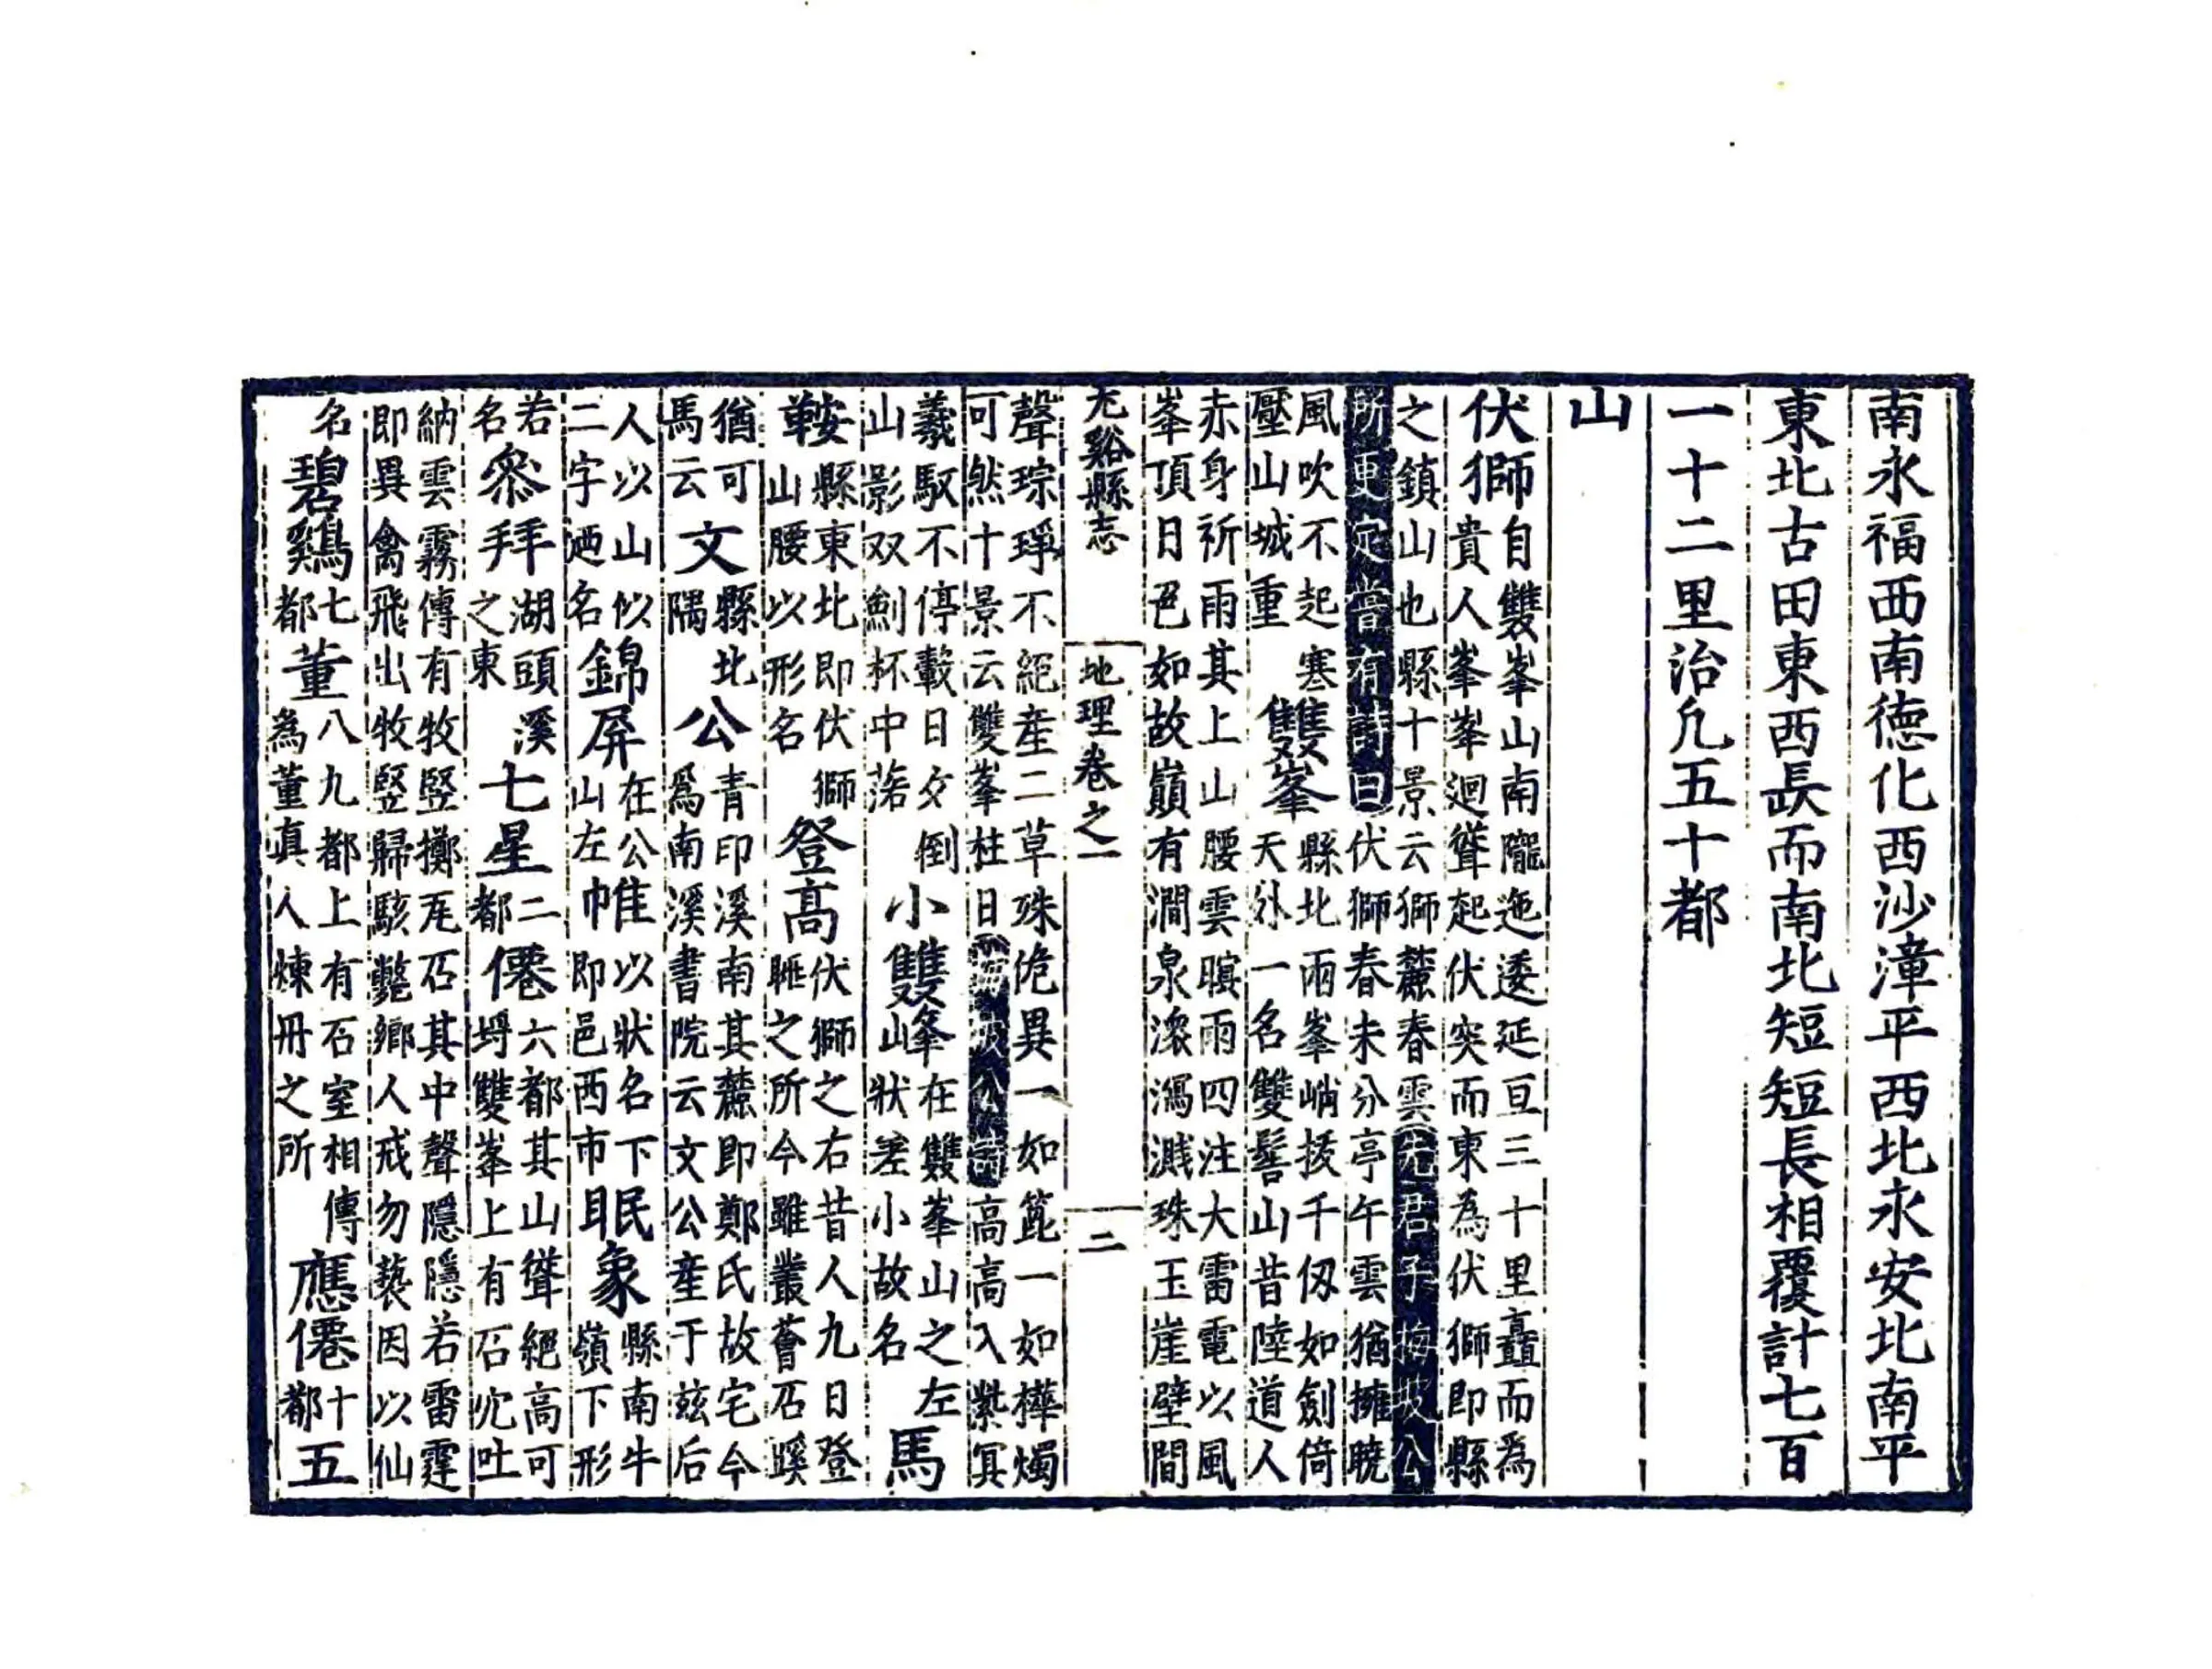 南永福西南德化西沙漳平西北永安北南平
東北古田東西長而南北短短長相覆計七百
一十二里治凢五十都
山
伏獅自雙峯山南隴迤逶延亘三十里矗而為貴人峯峯迴聳起伏突而東為伏獅即縣
之鎮山也縣十景云獅麓春雲先君子梅坡公所更定嘗有詩曰伏獅春未分亭午雲猶擁曉
風吹不起寒壓山城重雙峯縣北兩峯峭拔千仭如劍倚天外一名雙髻山昔陸道人
赤身祈雨其上山腰雲暝雨四注大雷電以風峯頂日色如故巔有澗泉滚瀉濺珠玉崖壁間
尤谿縣志 地理卷之一 二
聲琮琤不絕產二草殊佹異一如箆一如樺燭可然十景云雙峯柱日梅坡公詩高高入紫冥
羲馭不停轂日夕倒山影双劍杯中落小雙峰在雙峯山之左狀差小故名馬
鞍縣東北即伏獅山腰以形名登高伏獅之右昔人九日登眺之所今雖叢薈石蹊
猶可馬云文縣北隅公青印溪溪南其麓即鄭氏故宅今爲南溪書院云文公產于玆后
人以山似二字迺名錦屏在公山左帷以狀名下即邑西市眠象縣南牛嶺下形
若名叅拜湖頭溪之東七星二都僊六都其山聳絕高可埒雙峯上有石穴吐
納雲霧傳有牧竪擲瓦石其中聲隱隱若雷霆即異禽飛出牧竪歸駭斃鄉人戒勿褻因以仙
名碧鷄七都董八九都上有石室相傳為董真人煉丹之所應僊十都五